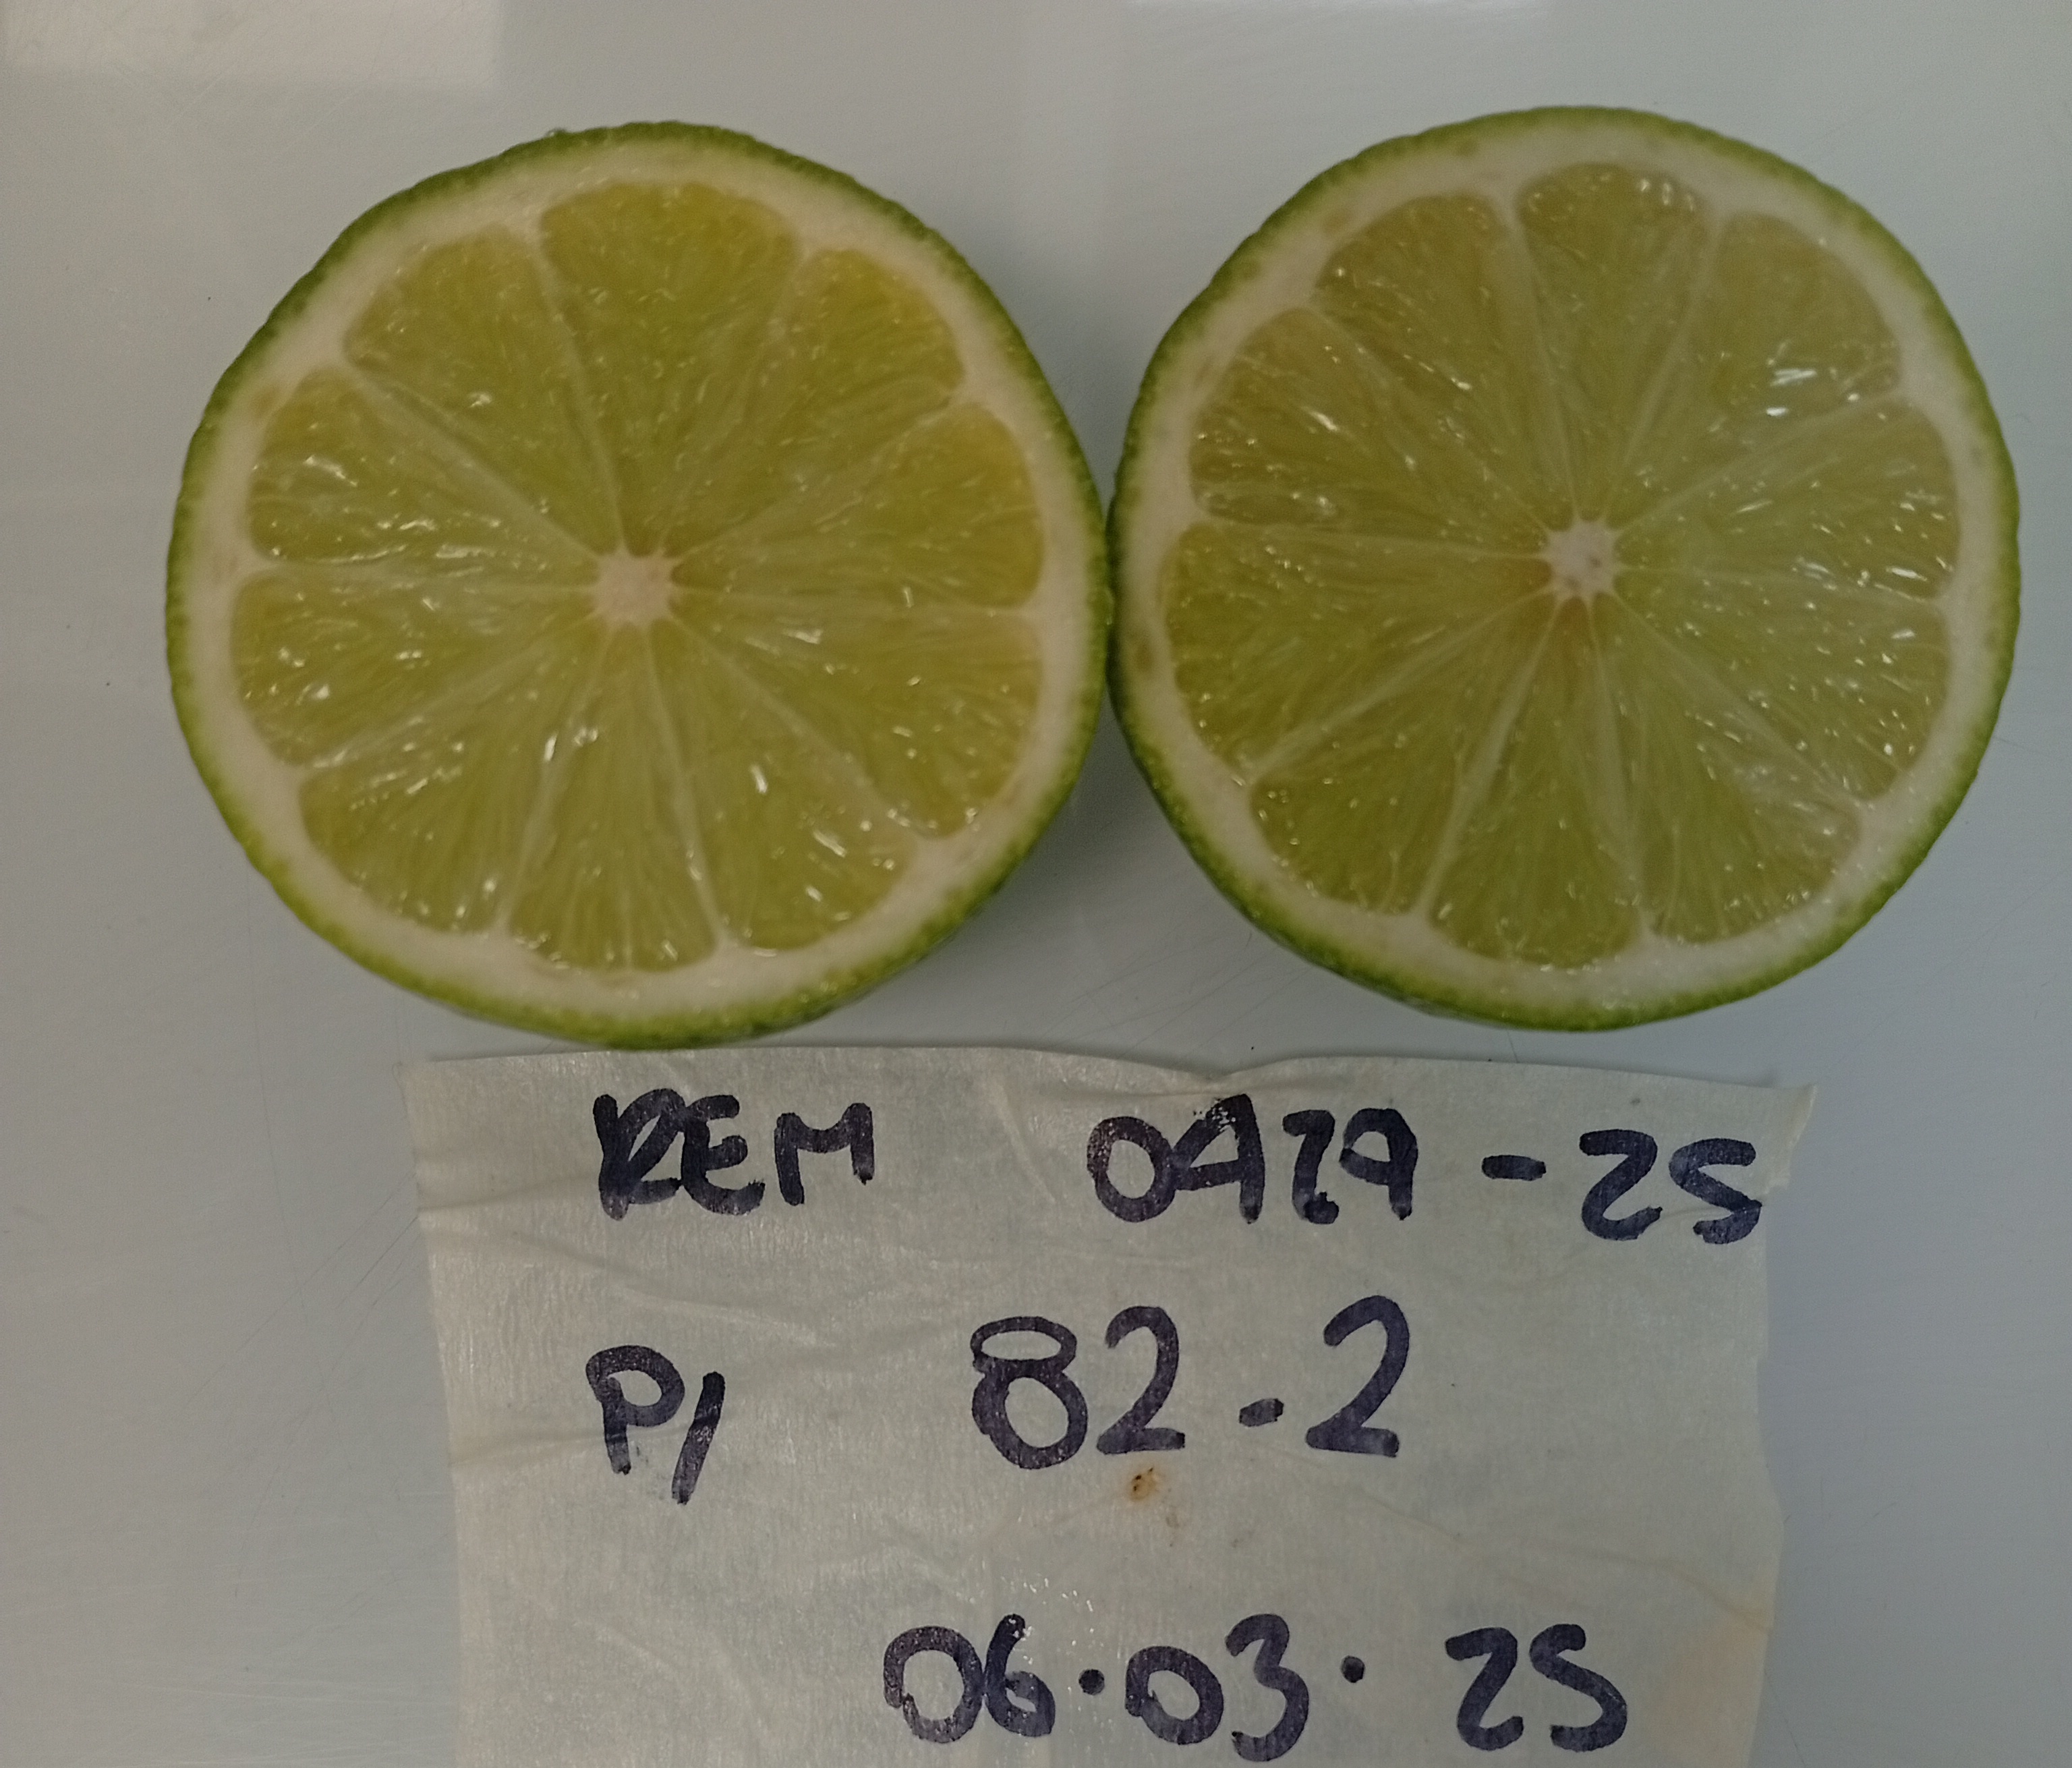 REM 0429-25
P/ 82-2
06.03.25